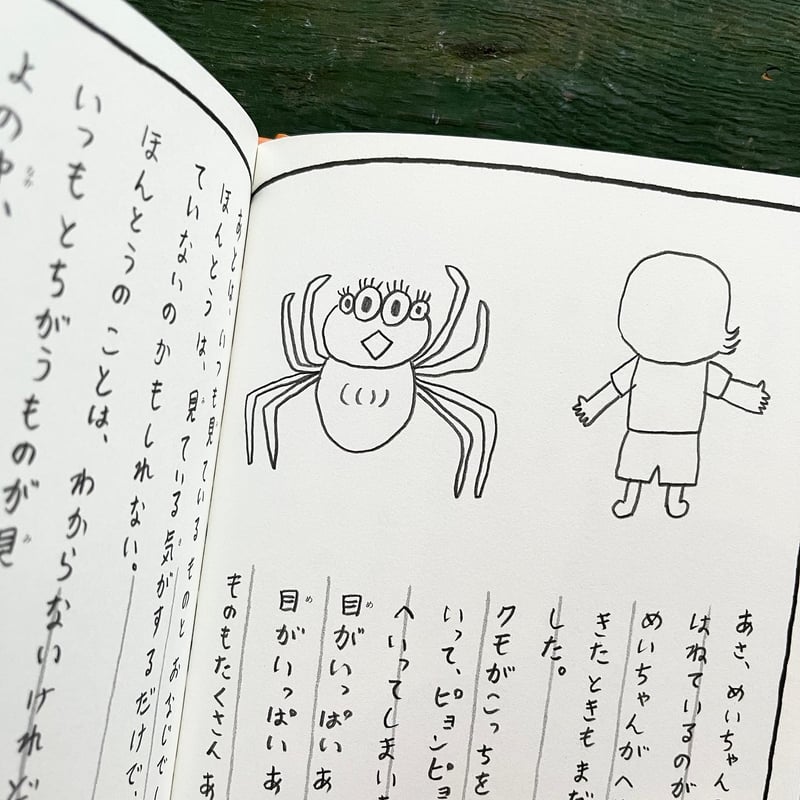 あさ、めいちゃん
はねているのが
めいちゃんがへ
きたときもまだ
した。
クモがこっちを
いって、ピョンピョ
へいってしまい
目がいっぱいあ
目がいっぱいあ
ものもたくさんあ
あとは、いつも見ているものとおなじでし
ほんとうは、見ている気がするだけで、
ていないのかもしれない。
ほんとうのことは、わからないけれど
いつもとちがうものが見
よの中、